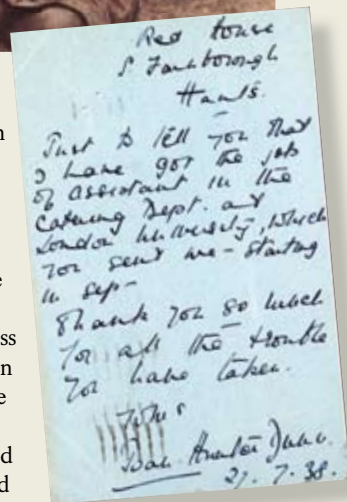 Red House
S Farnborough
Hants.
Just to tell you that
I have got the job
of assistant in the
Catering Dept. and
London University, which
you sent me - starting
in Sep -
Thank you so much
for all the trouble
you have taken.
Yours
Joan Hunter Dunn.
27.7.38.
ss